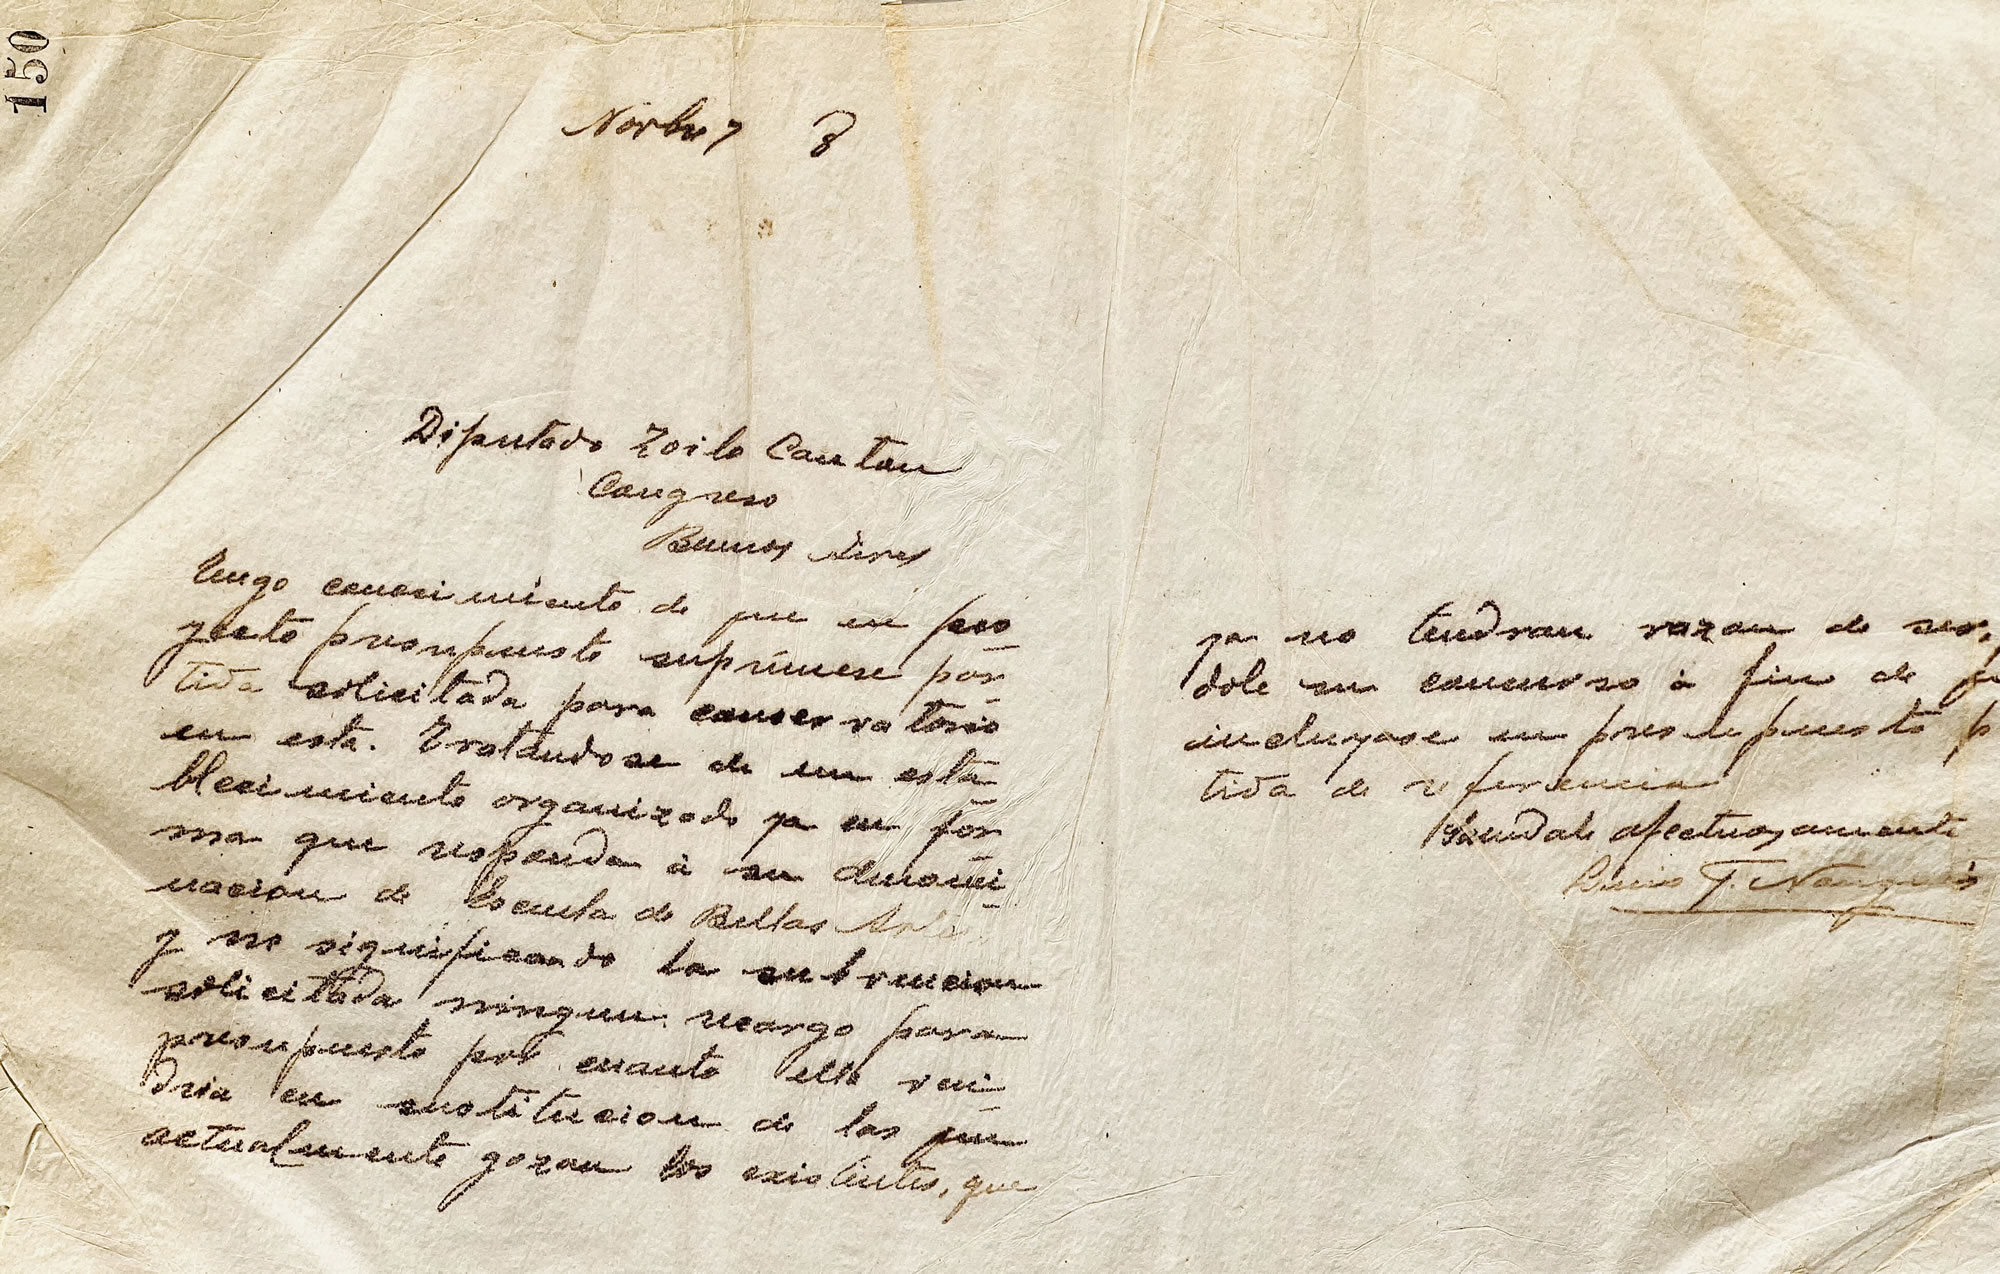 150
Novbre 7 8
Diputado Zoilo Canton
Congreso
Buenos Aires
Tengo conocimiento de que en pro
yecto presupuesto suprimese par
tida solicitada para conservatorio
en esta. Tratandose de un esta
blecimiento organizado ya en for
ma que responda à su denomi
nacion de Escuela de Bellas Artes
y no significando la subvencion
solicitada ningun recargo para
presupuesto por cuanto ella ven
dria en sustitucion de las que
actualmente gozan los existentes, que
ya no tendran razon de ser,
dole su concurso à fin de
incluyase en presupuesto p
tida de referencia
Saludale afectuosamente